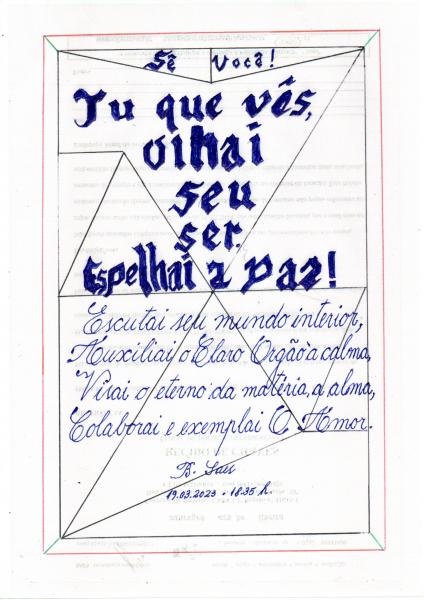 Sê Você!
Tu que vês,
olhai
seu
ser.
Espelhai a Paz!
Escutai seu mundo interior,
Auxiliai o Claro Orgão à calma,
Visai o eterno da matéria, a alma,
Colaborai e exemplai O Amor.
19.03.2023 - 18:35 h.